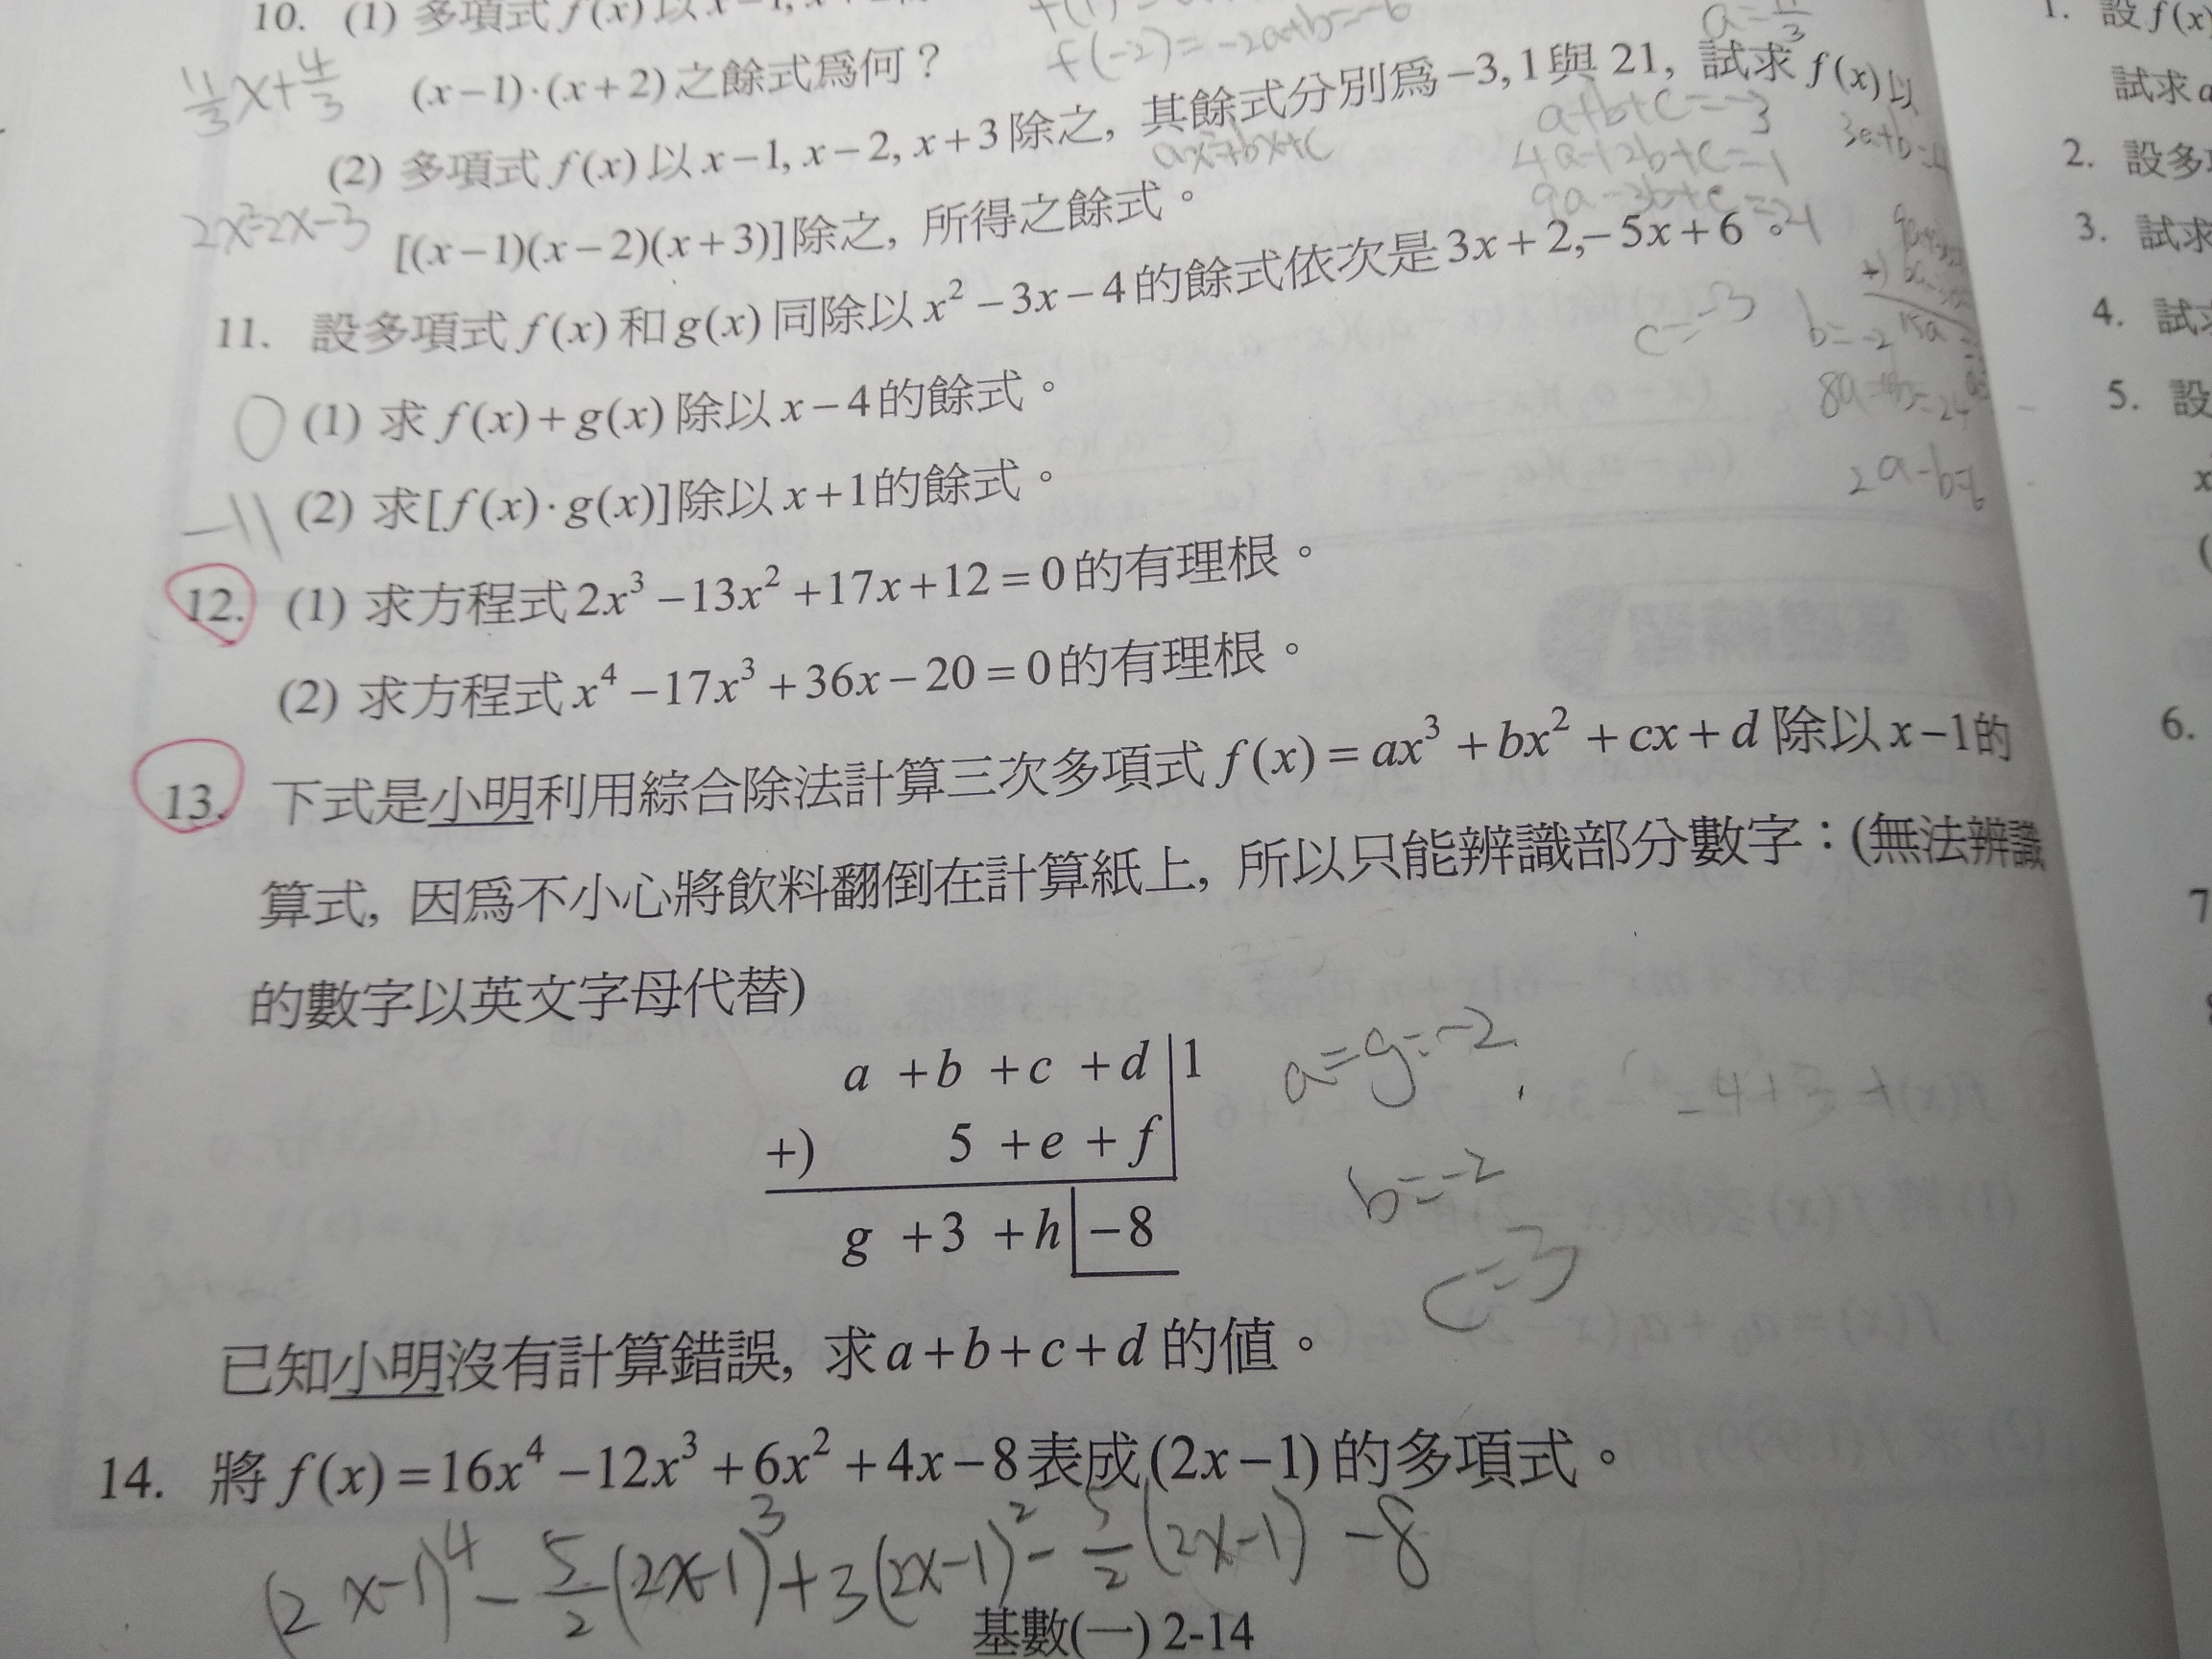 10. (1) 多項式 f(x) 以 x-1,
f(-2) = -2a+b = -6
11/3 x + 4/3
(x-1)·(x+2) 之餘式爲何？
(2) 多項式 f(x) 以 x-1, x-2, x+3 除之, 其餘式分別爲 -3, 1 與 21, 試求 f(x) 以
ax²+bx+c
a+b+c=-3
4a+2b+c=1
9a-3b+c=21
2x²-2x-3
[(x-1)(x-2)(x+3)] 除之, 所得之餘式。
c=-3
b=-2
2a-b=6
11. 設多項式 f(x) 和 g(x) 同除以 x² -3x-4 的餘式依次是 3x+2, -5x+6。
0 (1) 求 f(x)+g(x) 除以 x-4 的餘式。
-11 (2) 求 [f(x)·g(x)] 除以 x+1 的餘式。
12. (1) 求方程式 2x³ -13x² +17x+12=0 的有理根。
(2) 求方程式 x⁴ -17x³ +36x-20=0 的有理根。
13. 下式是小明利用綜合除法計算三次多項式 f(x)=ax³ +bx² +cx+d 除以 x-1 的
算式, 因爲不小心將飲料翻倒在計算紙上, 所以只能辨識部分數字：(無法辨識
的數字以英文字母代替)
a +b +c +d | 1
+) 5 +e +f
g +3 +h | -8
a=g=-2
b=-2
c=3
已知小明沒有計算錯誤, 求 a+b+c+d 的值。
14. 將 f(x)=16x⁴ -12x³ +6x² +4x-8 表成 (2x-1) 的多項式。
(2x-1)⁴ - 5/2 (2x-1)³ + 3(2x-1)² - 5/2 (2x-1) -8
基數(一) 2-14
1. 設 f(x)
試求
2. 設多
3. 試求
4. 試
5. 設
6.
7